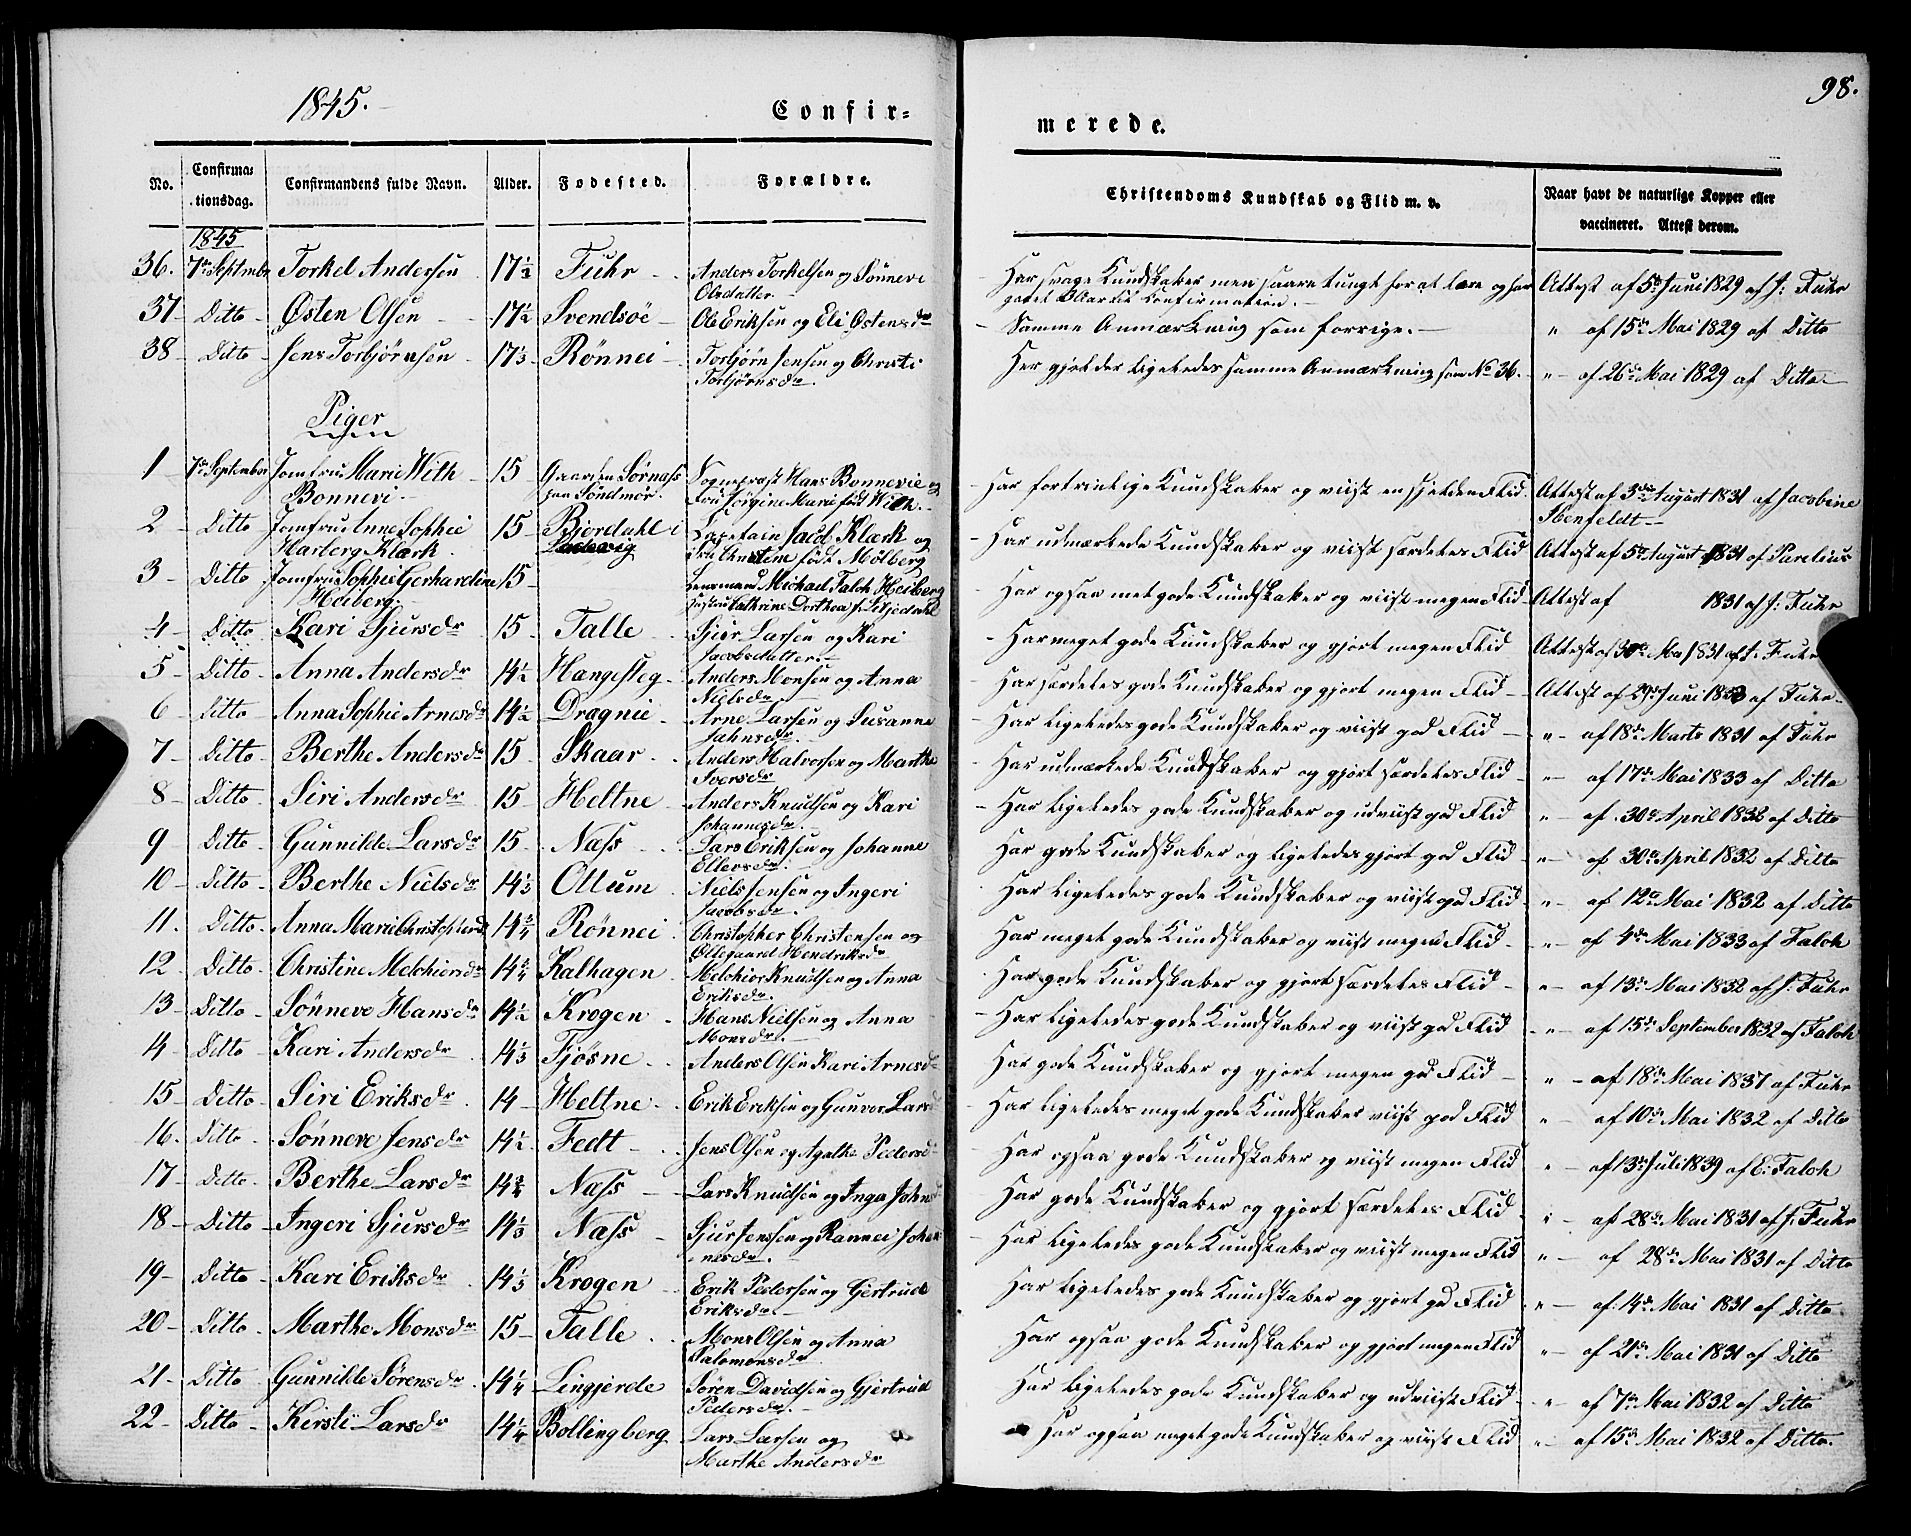 1845.
Confir=
No. Confirma=tionsdag. Confirmandens fulde Navn. Alder. Fødested. Forældre.
1845
36. 7de September Torkel Andersen 17½ Fuhr Anders Torkelsen og Sønnevi
Olsdatter
37 Ditto Østen Olsen 17½ Svendsøe Ole Eriksen og Eli Østensdr
38 Ditto Jens Torbjørnsen 17⅓ Rønnei Torbjørn Jensen og Christi
Torbjørnsdr
Piger
1 7de September Jomfru Marie With 15 Gaarden Sørnæss Sognepræst Hans Bonnevie og
Bonnevi paa Søndmør. Fru Jørgine Marie født With
2 Ditto Jomfru Anne Sophie 15 Bjordahl i Capetain Jacob Klærk og
Harberg Klærk Fru Christine født Mølberg
3 Ditto Jomfru Sophie Gerhardine 15 Lensmand Michael Faloh Heiberg
Heiberg Hustru Cathrine Dorthea
4 Ditto Kari Sjursdr 15 Talle Sjur Larsen og Kari
Jacobsdatter
5 Ditto Anna Andersdr 14½ Hangesteg Anders Monsen og Anna
Nielsdr
6 Ditto Anna Sophie Arnesdr 14½ Dragnie Arne Larsen og Susanne
Jahnsdr
7 Ditto Berthe Andersdr 15 Skaar Anders Halvorsen og Marthe
Iversdr
8 Ditto Siri Andersdr 15 Heltne Anders Knudsen og Kari
Johannesdr
9 Ditto Gunnilde Larsdr 15 Næss Lars Eriksen og Johanne
Ellersdr
10 Ditto Berthe Nielsdr 14⅓ Ottum Niels Jensen og Ingeri
Jacobsdr
11. Ditto Anna Marie Christophersdr 14¾ Rønnei Christopher Christensen og
Ollegaard Hendriksdr
12 Ditto Christine Melchiorsdr 14¾ Kalhagen Melchior Knudsen og Anna
Eriksdr
13 Ditto Sønneve Hansdr 14½ Krogen Hans Nielsen og Anna
Monsdr
14 Ditto Kari Andersdr 14⅓ Fjøsne Anders Olsen Kari Arnesdr
15 Ditto Siri Eriksdr 14 Heltne Erik Eriksen og Gunvor Larsd
16. Ditto Sønneve Jensdr 14½ Fedt Jens Olsen og Agathe Pedersd
17 Ditto Berthe Larsdr 14¾ Næss Lars Knudsen og Inga Johns
18 Ditto Ingeri Sjursdr 14⅓ Næss Sjur Jenssen og Rannei Johan
nesdr
19 Ditto Kari Eriksdr 14⅓ Krogen Erik Pedersen og Gjertrud
Eriksdr
20 Ditto Marthe Monsdr 15 Talle Mons Olsen og Anna
Salomonsdr
21 Ditto Gunnilde Sørensdr 14¼ Lingjerde Søren Davidsen og Gjertrud
Pedersdr
22 Ditto Kirsti Larsdr 14¼ Bollingberg Lars Larsen og
Marthe Andersdr
98.
merede.
Christendoms Kundskab og Flid m. v. Naar havt de naturlige Kopper eller
vaccineret. Attest derom.
Har svage Kundskaber men saare tungt for at lære og har Attest af 5te Juni 1829 af J: Fuhr
Confirmation.
Samme Anmærkning som forrige. " af 15de Mai 1829 af Ditto
Her gjælder ligeledes samme Anmærkning som No 36. " af 26de Mai 1829 af Ditto
Har fortrinlige Kundskaber og viist en sjelden Flid Attest af 3die August 1831 af Jacobine
Stenfeldt
Har udmærkede Kundskaber og viist særdeles Flid Attest af 5te August 1831 af Parelius
Har ogsaa met gode Kundskaber og viist megen Flid Attest af 1831 af J: Fuhr
Har meget gode Kundskaber og gjort megen Flid Attest af 30te Ma 1831 af J. Fuhr
Har særdeles gode Kundskaber og gjort megen Flid Attest af 29de Juni af Fuhr
Har ligeledes gode Kundskaber og viist god Flid " af 18de Marts 1831 af Fuhr
Har udmærkede Kundskaber og gjort særdeles Flid " af 17de Mai 1833 af Ditto
Har ligeledes gode Kundskaber og udviist god Flid " af 30te April 1832 af Ditto
Har gode Kundskaber og ligeledes gjort god Flid " af 30te April 1832 af Ditto
Har ligeledes gode Kundskaber og viist god Flid " af 12te Mai 1832 af Ditto
Har meget gode Kundskaber og viist megen Flid " af 4de Mai 1833 af Faloh
Har gode Kundskaber og gjort særdeles Flid " af 13de Mai 1832 af J. Fuhr
Har ligeledes gode Kundskaber og viist god Flid " af 15de September 1832 af Faloh
Har gode Kundskaber og gjort megen god Flid " af 18de Mai 1837 af Fuhr
Har ligeledes meget gode Kundskaber viist god Flid " af 10de Mai 1832 af Ditto
Har ogsaa gode Kundskaber og viist megen Flid " af 13de Juli 1839 af E: Faloh
Har gode Kundskaber og gjort særdeles Flid " af 28de Mai 1831 af J: Fuhr
Har ligeledes gode Kundskaber og viist megen Flid " af 28de Mai 1831 af Ditto
Har ligeledes gode Kundskaber og gjort god Flid " af 14de Mai 1831 af Ditto
Har ogsaa gode Kundskaber og gjort megen Flid " af 21de Mai 1831 af Ditto
Har ligeledes gode Kundskaber og udviist Flid " af 7de Mai 1832 af Ditto
Har ogsaa meget gode Kundskaber og viist Flid " af 15de Mai 1832 af Ditto.